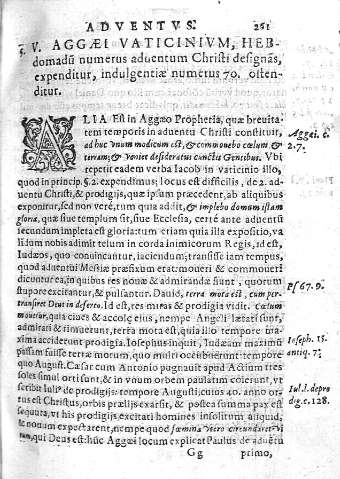 ADVENTVS. 261
§. V. AGGÆI VATICINIVM, HEB-
domadũ numerus aduentum Christi designãs,
expenditur, indulgentiæ numerus 70. osten-
ditur.
ALIA Est in Aggæo Prophetia, quæ breuita-
tem temporis in aduentu Christi constituit,
adhuc vnum modicum est, & commouebo cœlum &
terram; & veniet desideratus cunctis Gentibus. Vbi
Aggæi. c.
2. 7.
repetit eadem verba Iacob in vaticinio illo,
quod in princip. §. 2. expendimus; locus est difficilis, de 2. ad-
uentu Christi, & prodigijs, quæ ipsum præcedent, ab aliquibus
exponitur, sed non verè, tum quia addit, & implebo domum istam
gloria, quæ siue templum sit, siue Ecclesia, certè ante aduentũ
secundum impleta est gloria: tum etiam quia illa expositio, va
lidum nobis adimit telum in corda inimicorum Regis, id est,
Iudæos, quo conuincantur, iaciendum; transisse iam tempus,
quod aduentui Messiæ præfixum erat: moueri & commoueri
dicuntur ea, in quibus res nouæ & admirandæ sunt, quorum
stupore excitantur, & pulsantur. Dauid, terra mota est, cum per-
transiret Deus in deserto. Id est miris & prodigia vidit. Cœlum
Psf 67. 9.
mouetur, quia ciues & accolę eius, nempe Angeli lætati sunt,
admirati & timuerunt, terra mota est, quia illo tempore ma-
xima acciderunt prodigia. Iosephus inquit, Iudæam maximũ
passam fuisse terræ motum, quo multi occubuerunt tempore
Ioseph. 15.
antiq. 7.
quo August. Cæsar cum Antonio pugnauit apud Actium tres
soles simul orti sunt, & in vnum orbem paulatim coierunt, vt
scribit Iuli' de prodigijs: tempore Augusti, cuius 40. anno or-
Iul. l. de pro
dig. c. 128.
tus est Christus, orbis prælijs exarsit, & postea summa pax est
sequuta, vt his prodigijs excitati homines insolitum aliquid,
& nouum expectarent, nempe quod fœmina Vetro circumdet vi-
rum, qui Deus est: hûc Aggæi locum explicat Paulus de aduẽtu
Gg primo,